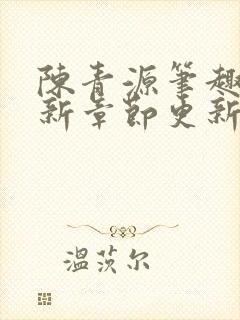 陳青源筆趣
新章節更新
溫茨尔